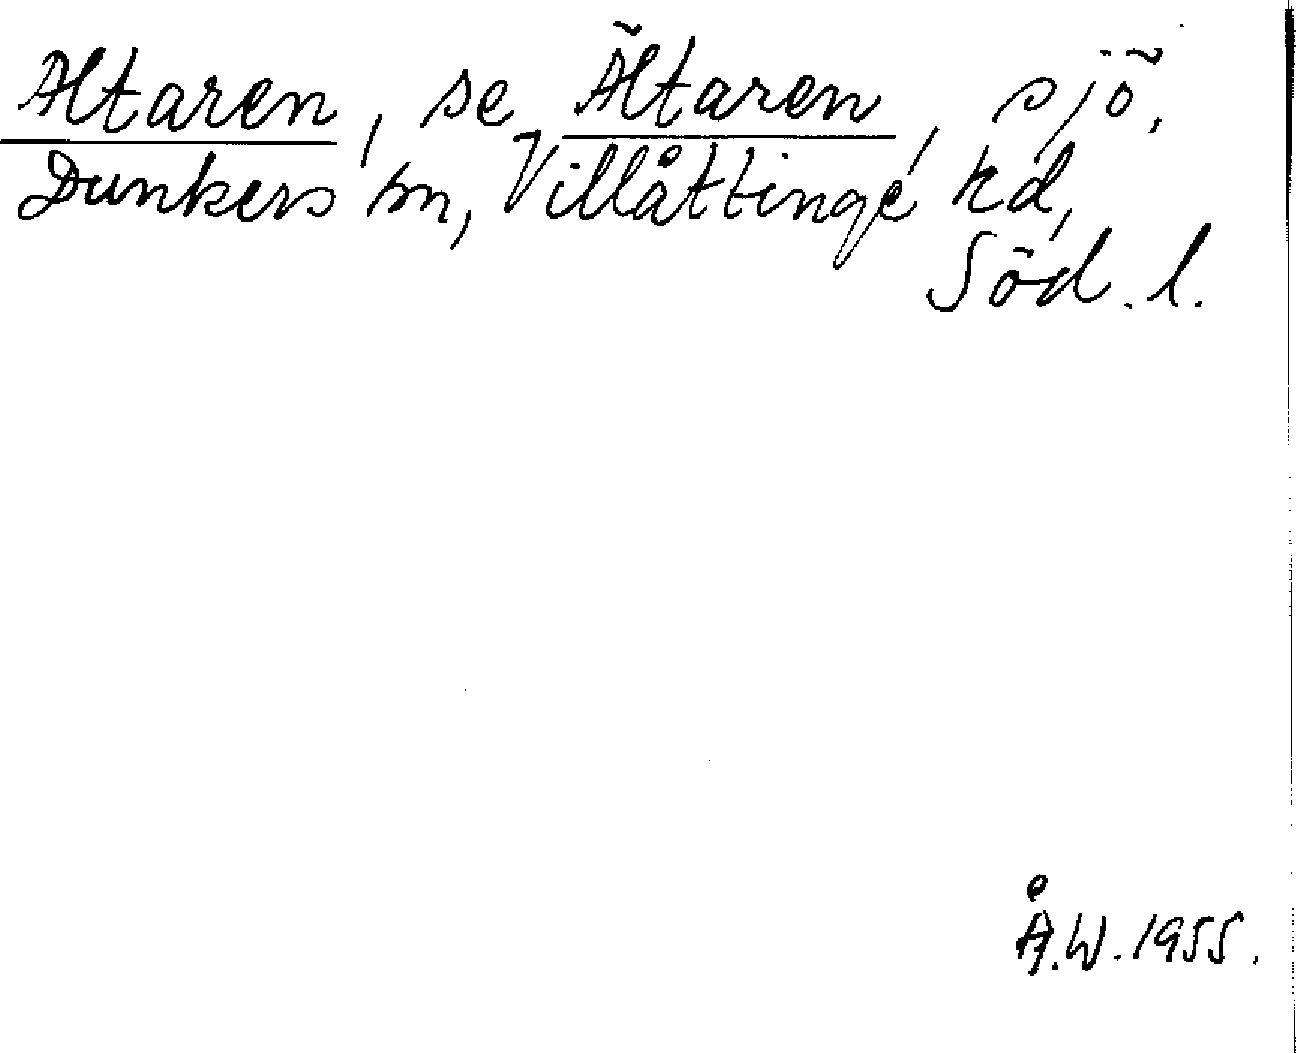 Altaren, se Ältaren, sjö,
Dunkers sn, Villåttinge hd,
Söd. l.
Å.W. 1955.